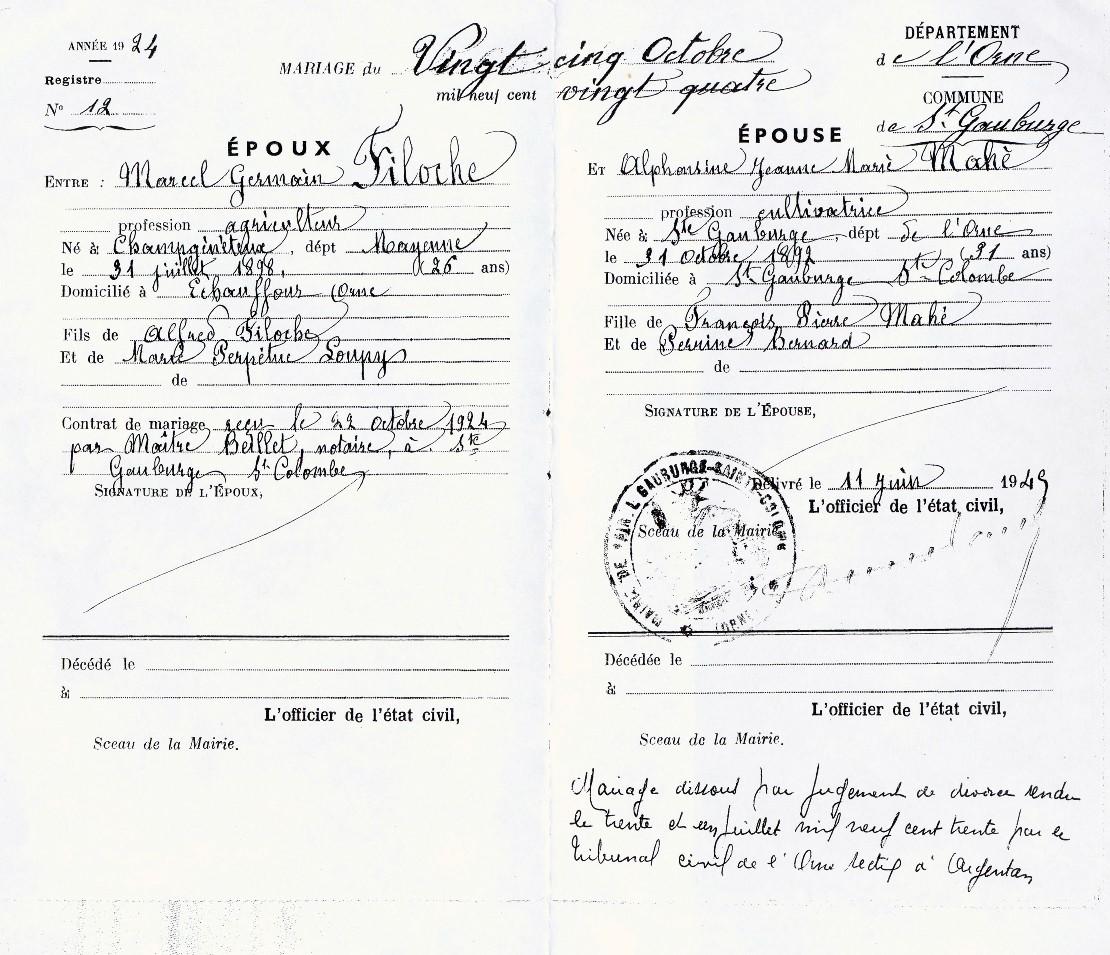 ANNÉE 1924
Registre
N° 12
MARIAGE du Vingt cinq Octobre
mil neuf cent vingt quatre
DÉPARTEMENT
de l'Orne
COMMUNE
de St Gauburge
ÉPOUX
ENTRE : Marcel Germain Filoche
profession agriculteur
Né à Champgénéteux, dépt Mayenne
le 31 juillet 1898, (26 ans)
Domicilié à Echauffour Orne
Fils de Alfred Filoche
Et de Marie Perpétue Loupy
de
Contrat de mariage reçu le 22 octobre 1924
par Maître Beillet, notaire, à Ste
Gauburge St Colombe
SIGNATURE DE L'ÉPOUX,
Décédé le
à
L'officier de l'état civil,
Sceau de la Mairie.
ÉPOUSE
ET Alphonsine Jeanne Marie Mahé
profession cultivatrice
Née à Ste Gauburge, dépt de l'Orne
le 31 octobre 1892 (31 ans)
Domiciliée à St Gauburge St Colombe
Fille de François Pierre Mahé
Et de Perrine Bernard
de
SIGNATURE DE L'ÉPOUSE,
Délivré le 11 juin 1949
L'officier de l'état civil,
Sceau de la Mairie
MAIRIE DE GAUBURGE-SAINTE-COLOMBE
(ORNE)
Décédée le
à
L'officier de l'état civil,
Sceau de la Mairie.
Mariage dissout par jugement de divorce rendu
le trente et un juillet mil neuf cent trente par le
tribunal civil de l'Orne à Argentan